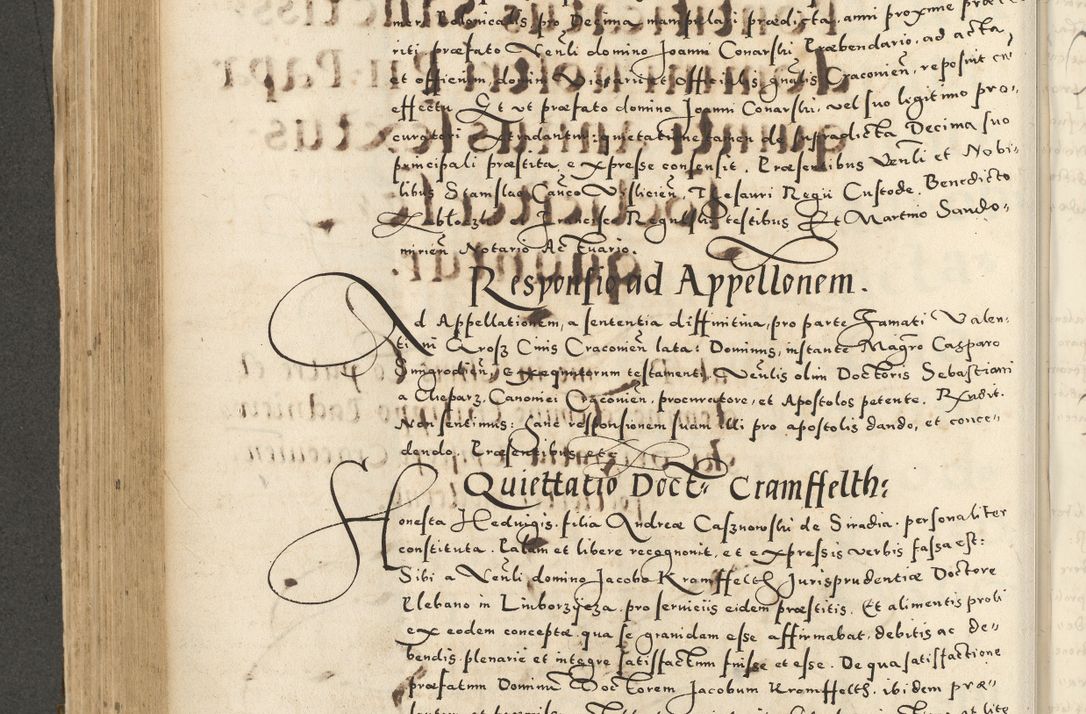 mer Polonicales, pro Decima manipulari prædicta, anni proxime præte
riti præfato Venli domino Joanni Conarski Præbendario, ad acta
et officium, domini Vicarii et Officialis gnalis Cracovien, reposuit cu
effectu. Et ut præfato domino Joanni Conarski, vel suo legitimo pro,
curatori extradantur: quietatione tamen de infradicta Decima suo
principali præstita, expresse consensit. Præsentibus Venli et Nobi„
libus Stanislao Canco Visliciēn, Thesauri Regii Custode, Benedicto
Francisco testibus Et Martino Sando„
miriēn Notario Actuario.
Responsio ad Appellonem.
Ad Appellationem, a sententia diffinitiva, pro parte Famati Valen:
tini Krosz Civis Cracoviēn lata: Dominus, instante Magro Casparo
executorum testamenti, Venlis olim Doctoris Sebastiani
a Cleparz, Canonici Cracoviēn, procuratore, et Apostolos petente, Rndit.
Non sentimus: Sane responsionem suam illi pro apostolis dando, et conce„
dendo. Præsentibus etc
Quiettatio Doct: Cramffelth:
Honesta Hedvigis, filia Andreæ Casznowski de Siradia, personaliter
constituta. Palam et libere recognovit, et expressis verbis fassa est:
Sibi a Venli domino Jacobo Kramffelth Jurisprudentiæ Doctore
Plebano in Limborzyeza, pro serviciis eidem præstitis, Et alimentis proli
ex eodem conceptæ, qua se gravidam esse affirmabat, debitis ac de„
bendis, plenarie et integre satisfactum fuisse et esse. De qua satisfactione
præfatum Dominū Doctorem Jacobum Kromffelth, ibidem præ„